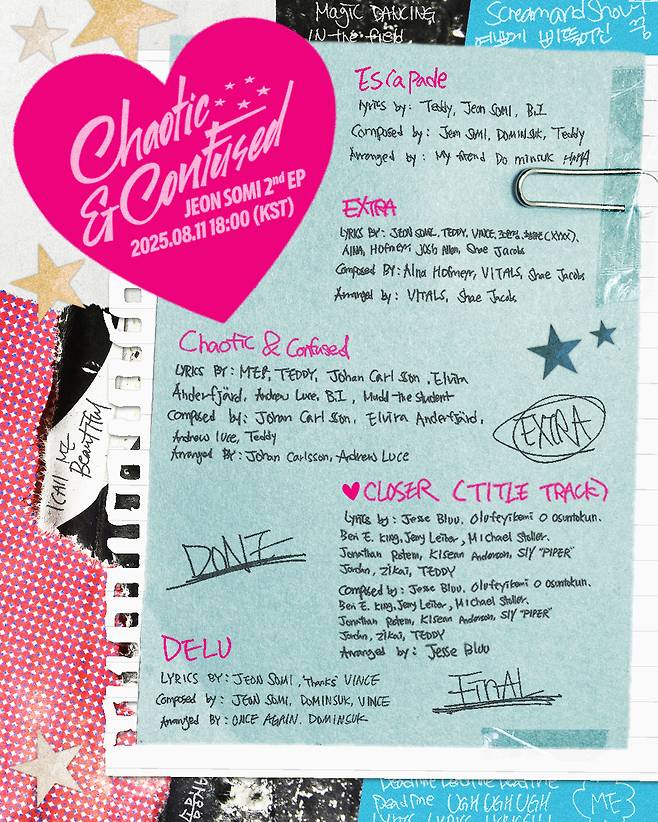 Magic DANCING
IN the field
Screamandshout
Chaotic
& Confused
JEON SOMI 2nd EP
2025.08.11 18:00 (KST)
Escapade
lyrics by : Teddy, Jeon SOMI, B.I
Composed by : Jeon SOMI, DOMINSUK, Teddy
Arranged by : My friend Do minsuk HAHA
EXTRA
LYRICS BY : JEON SOMI, TEDDY, VINCE, (XYXX),
AINA, Hofmeyr, Josh Allen, Shae Jacobs
Composed BY : Aina Hofmeyr, VITALS, Shae Jacobs
Arranged by : VITALS, Shae Jacobs
Chaotic & Confused
LYRICS BY : MEP, TEDDY, Johan Carlsson, Elvira
Anderfjärd, Andrew Luce, B.I, Mudd the student
Composed by : Johan Carlsson, Elvira Anderfjärd,
Andrew luce, Teddy
Arranged BY : Johan Carlsson, Andrew Luce
I CAll ME
BEAUTIFUl
EXTRA
♥ CLOSER (TITLE TRACK)
Lyrics by : Jesse Bluu. Olufeyikemi O osuntokun.
Ben E. King, Jerry Leiber, Michael Stoller.
Jonathan Rotem, Kisean Anderson, SlY "PIPER"
Jordan, Zikai, TEDDY
Composed by : Jesse Bluu. Olufeyikemi O osuntokun.
Ben E. King, Jerry Leiber, Michael Stoller.
Jonathan Rotem, Kisean Anderson, SlY "PIPER"
Jordan, Zikai, TEDDY
Arranged by : Jesse Bluu
DONE
DELU
LYRICS BY : JEON SOMI, 'Thanks' VINCE
Composed by : JEON SOMI, DOMINSUK, VINCE
Arranged by : ONCE AGAIN. DOMINSUK
FinAL
Deadline Deadline Deadline
Deadline UGH UGH UGH
(ME)